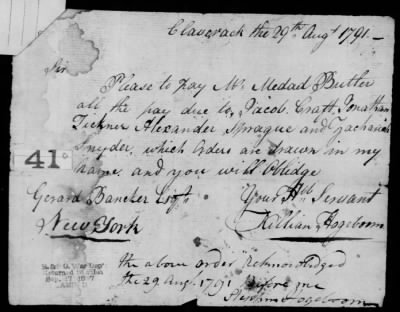 Claverack the 29th Augt 1791.—
Sir
Please to pay Mr Medad Butler
all the pay due to Jacob Craft, Jonathan
Tickner Alexander Sprague and Zachariah
Snyder, which Orders are drawn in my
name and you will Oblidge
41
Gerard Bancker Esqr. Your Hble Servant
New York Killian Hogeboom
the above order Acknowledged
the 29 Augt. 1791 before me
Hogeboom